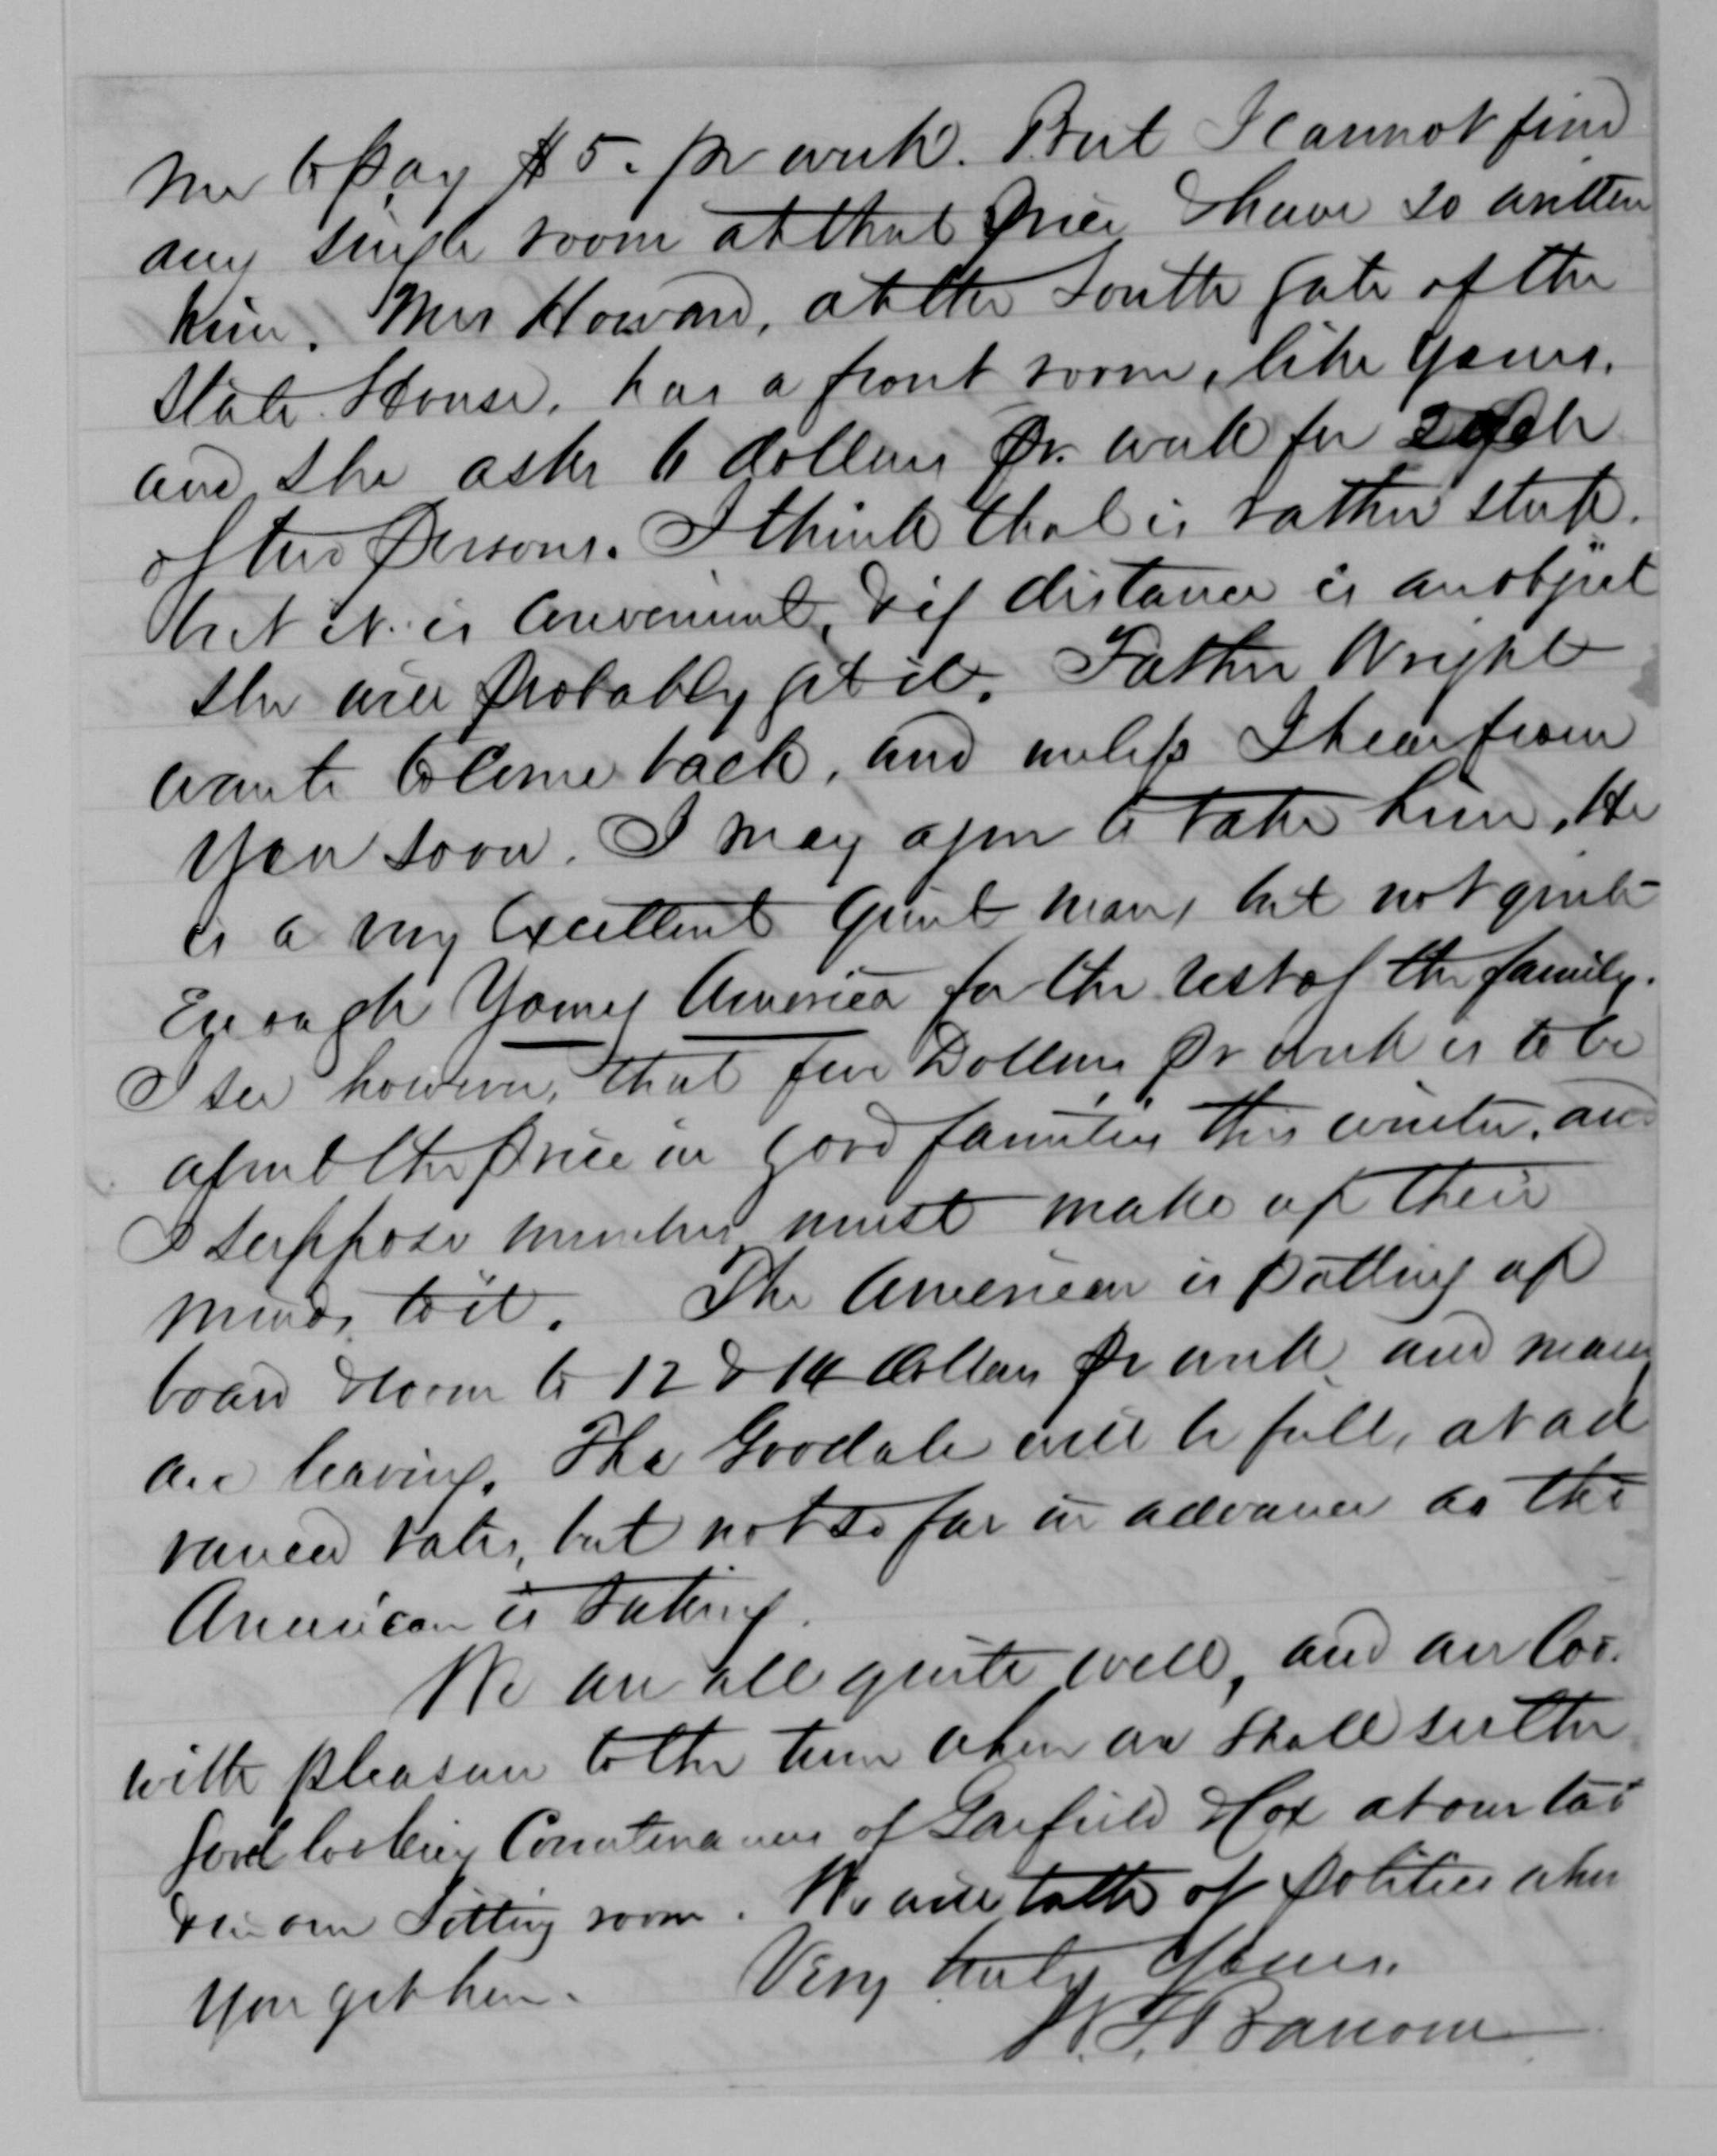 me to pay $5. pr week. But I cannot find
any single room at that price I have so written
him. Mrs Howard, at the South gate of the
State House, has a front room, like yours,
and she asks 6 dollars pr. week for each
of two persons. I think that is rather steep.
but it is convenient, & if distance is an object
she will probably get it. Father Wright
wants to come back, and unless I hear from
you soon. I may agree to take him. He
is a very excellent quiet man, but not quite
Enough Young America for the rest of the family.
I see however, that five Dollars pr week is to be
about the price in good families this winter, and
I suppose members must make up their
minds to it. The American is putting up
board & room to 12 & 14 dollars pr week and many
are leaving. The Goodale will be full, at ad
vanced rates, but not so far in advance as the
American is taking.
We are all quite well, and are loo
with pleasure to the time when we shall see the
good looking Countenances of Garfield & Cox at our tab
& in our Sitting room. We will talk of politics when
you get here. Very truly Yours.
W. T. Bascom